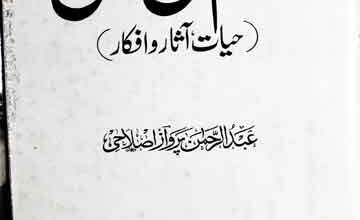 (حیات، آثار و افکار)
عبدُ الرّحمٰن پرواز اصلاحی